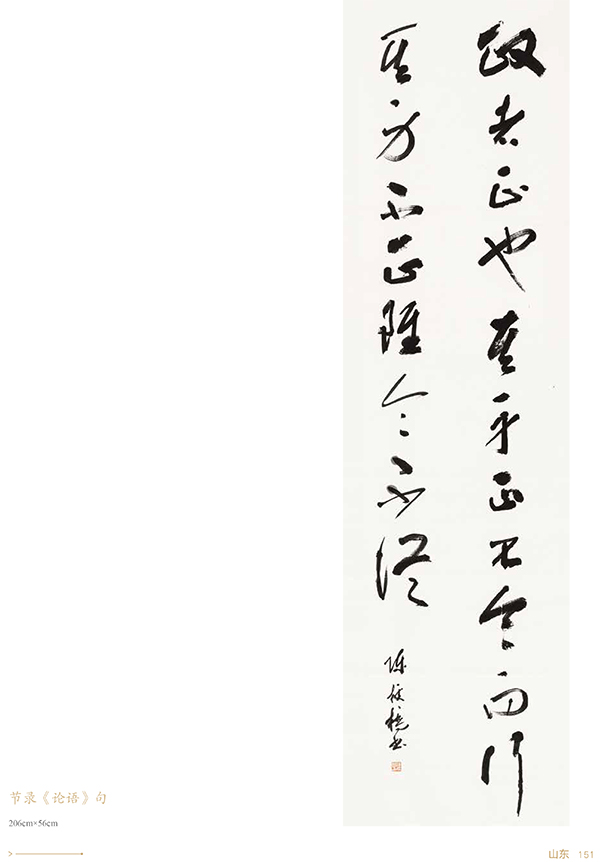 政者正也其身正不令而行
其身不正雖令不從
陈书
节录《论语》句
206cm×56cm
山东 151